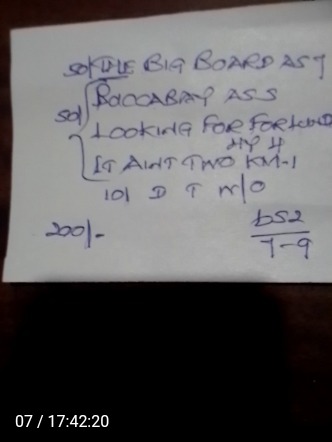 50/ THE BIG BOARD AST
50/ BOCCABAY ASS
LOOKING FOR FORLUND
HP H
IT AINT TWO KM-1
10/ D T W/O
200/-
652
7-9
07 / 17:42:20